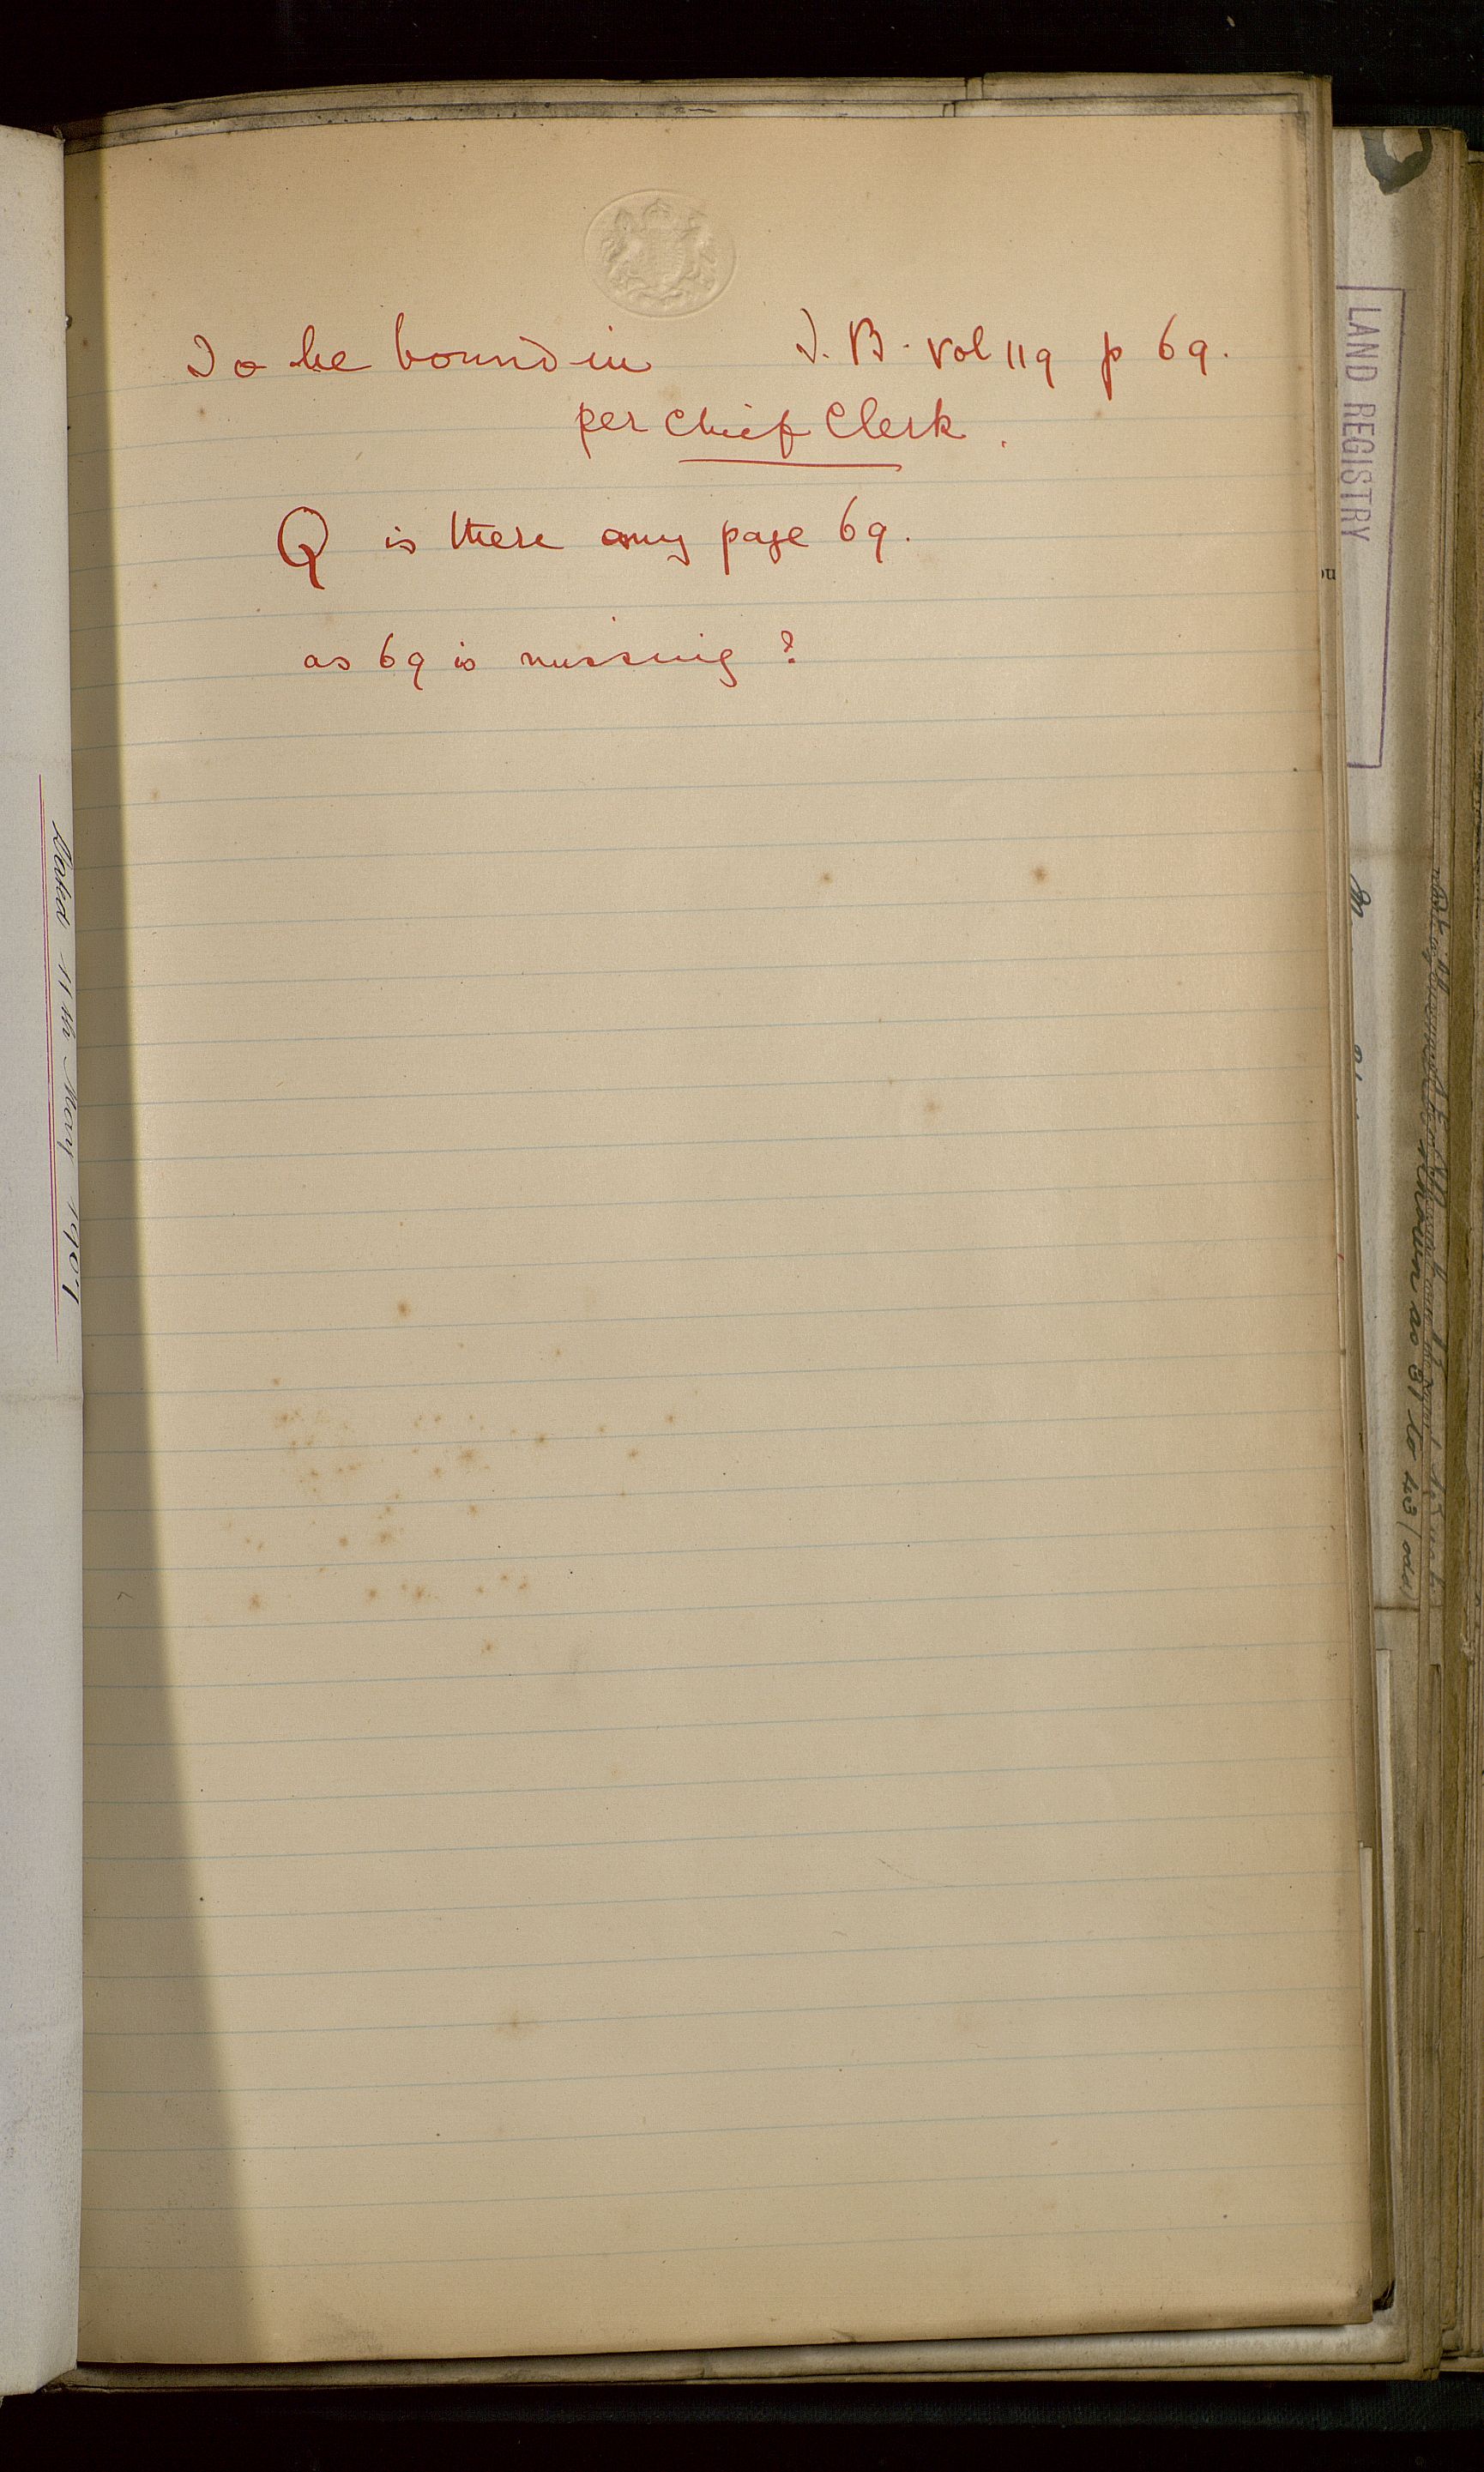 To be bound in J. B. Vol 119 p 69.
per Chief Clerk.
Q is there any page 69.
as 69 is missing ?
Dated 11th May 1907
LAND REGISTRY
as 37 to 43 (odd)